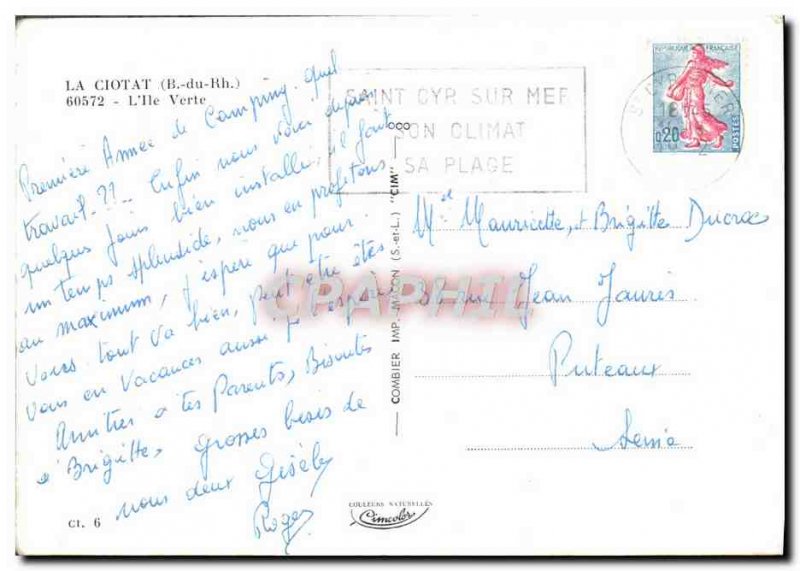 LA CIOTAT (B.-du-Rh.)
60572 - L'Ile Verte
Première Année de Camping. quel
travail - ?? - Enfin nous voici depuis
quelques jours bien installé il fait
un temps splendide, nous en profitons
au maximum, j'espère que pour
vous tout va bien, peut être êtes
vous en vacances aussi
Amitiés à tes Parents, Biscuites
à Brigitte, Grosses bises de
nous deux Gisèle
Roger
Ct. 6
SAINT CYR SUR MER
SON CLIMAT
SA PLAGE
REPUBLIQUE FRANÇAISE
0,20
POSTES
COMBIER IMP. MACON (S.-et-L.) "CIM"
CPAPHIL
Mel Mauricette, et Brigitte Ducroc
rue Jean Jaurès
Puteaux
Seine
COULEURS NATURELLES
Cimcolor